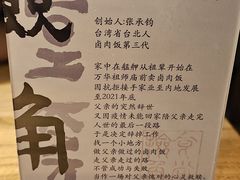 角
创始人:张承钧
台湾省台北人
卤肉饭第三代
家中在艋舺从祖辈开始在
万华祖师庙前卖卤肉饭
因抗拒接手家业至内地发展
至2021年底
父亲的突然辞世
又因疫情未能回家陪父亲走完
人世的最后一段路
于是决定辞掉工作
找一个小地方
做父亲做过的卤肉饭
走父亲走过的路
不管成功与失败